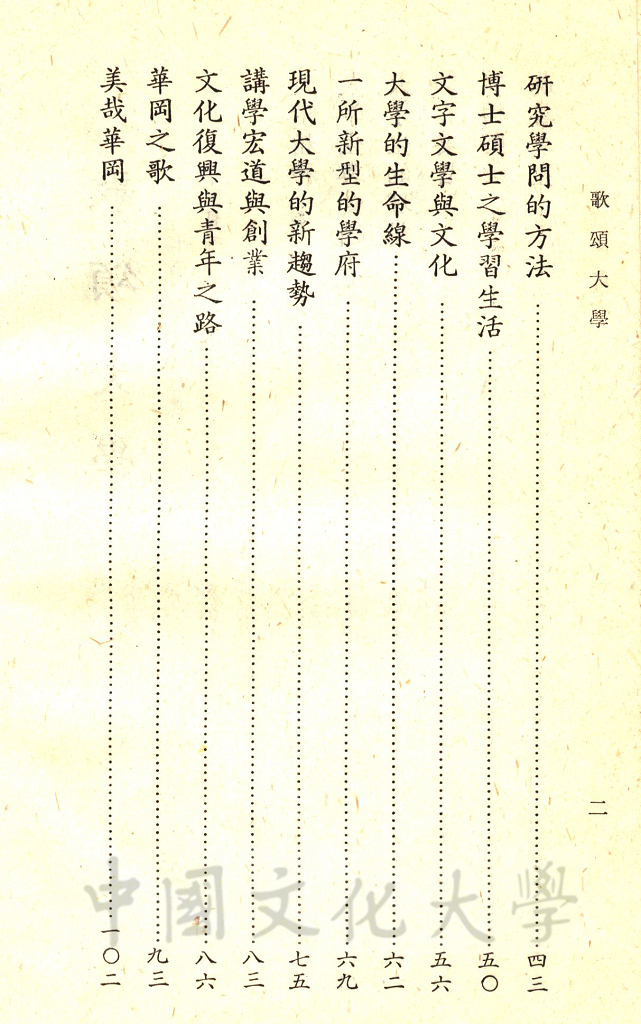 歌頌大學
二
研究學問的方法……四三
博士碩士之學習生活……五〇
文字文學與文化……五六
大學的生命線……六二
一所新型的學府……六九
現代大學的新趨勢……七五
講學宏道與創業……八三
文化復興與青年之路……八六
華岡之歌……九三
美哉華岡……一〇二
中國文化大學